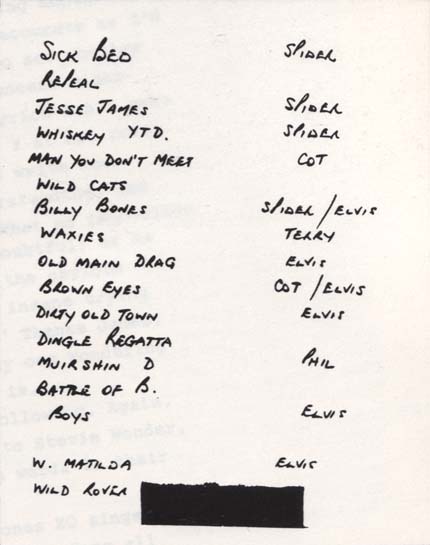 SICK BED SPIDER
REPEAL
JESSE JAMES SPIDER
WHISKEY YTD. SPIDER
MAN YOU DON'T MEET COT
WILD CATS
BILLY BONES SPIDER/ELVIS
WAXIES TERRY
OLD MAIN DRAG ELVIS
BROWN EYES COT/ELVIS
DIRTY OLD TOWN ELVIS
DINGLE REGATTA
MUIRSHIN D PHIL
BATTLE OF B.
BOYS ELVIS
W. MATILDA ELVIS
WILD ROVER